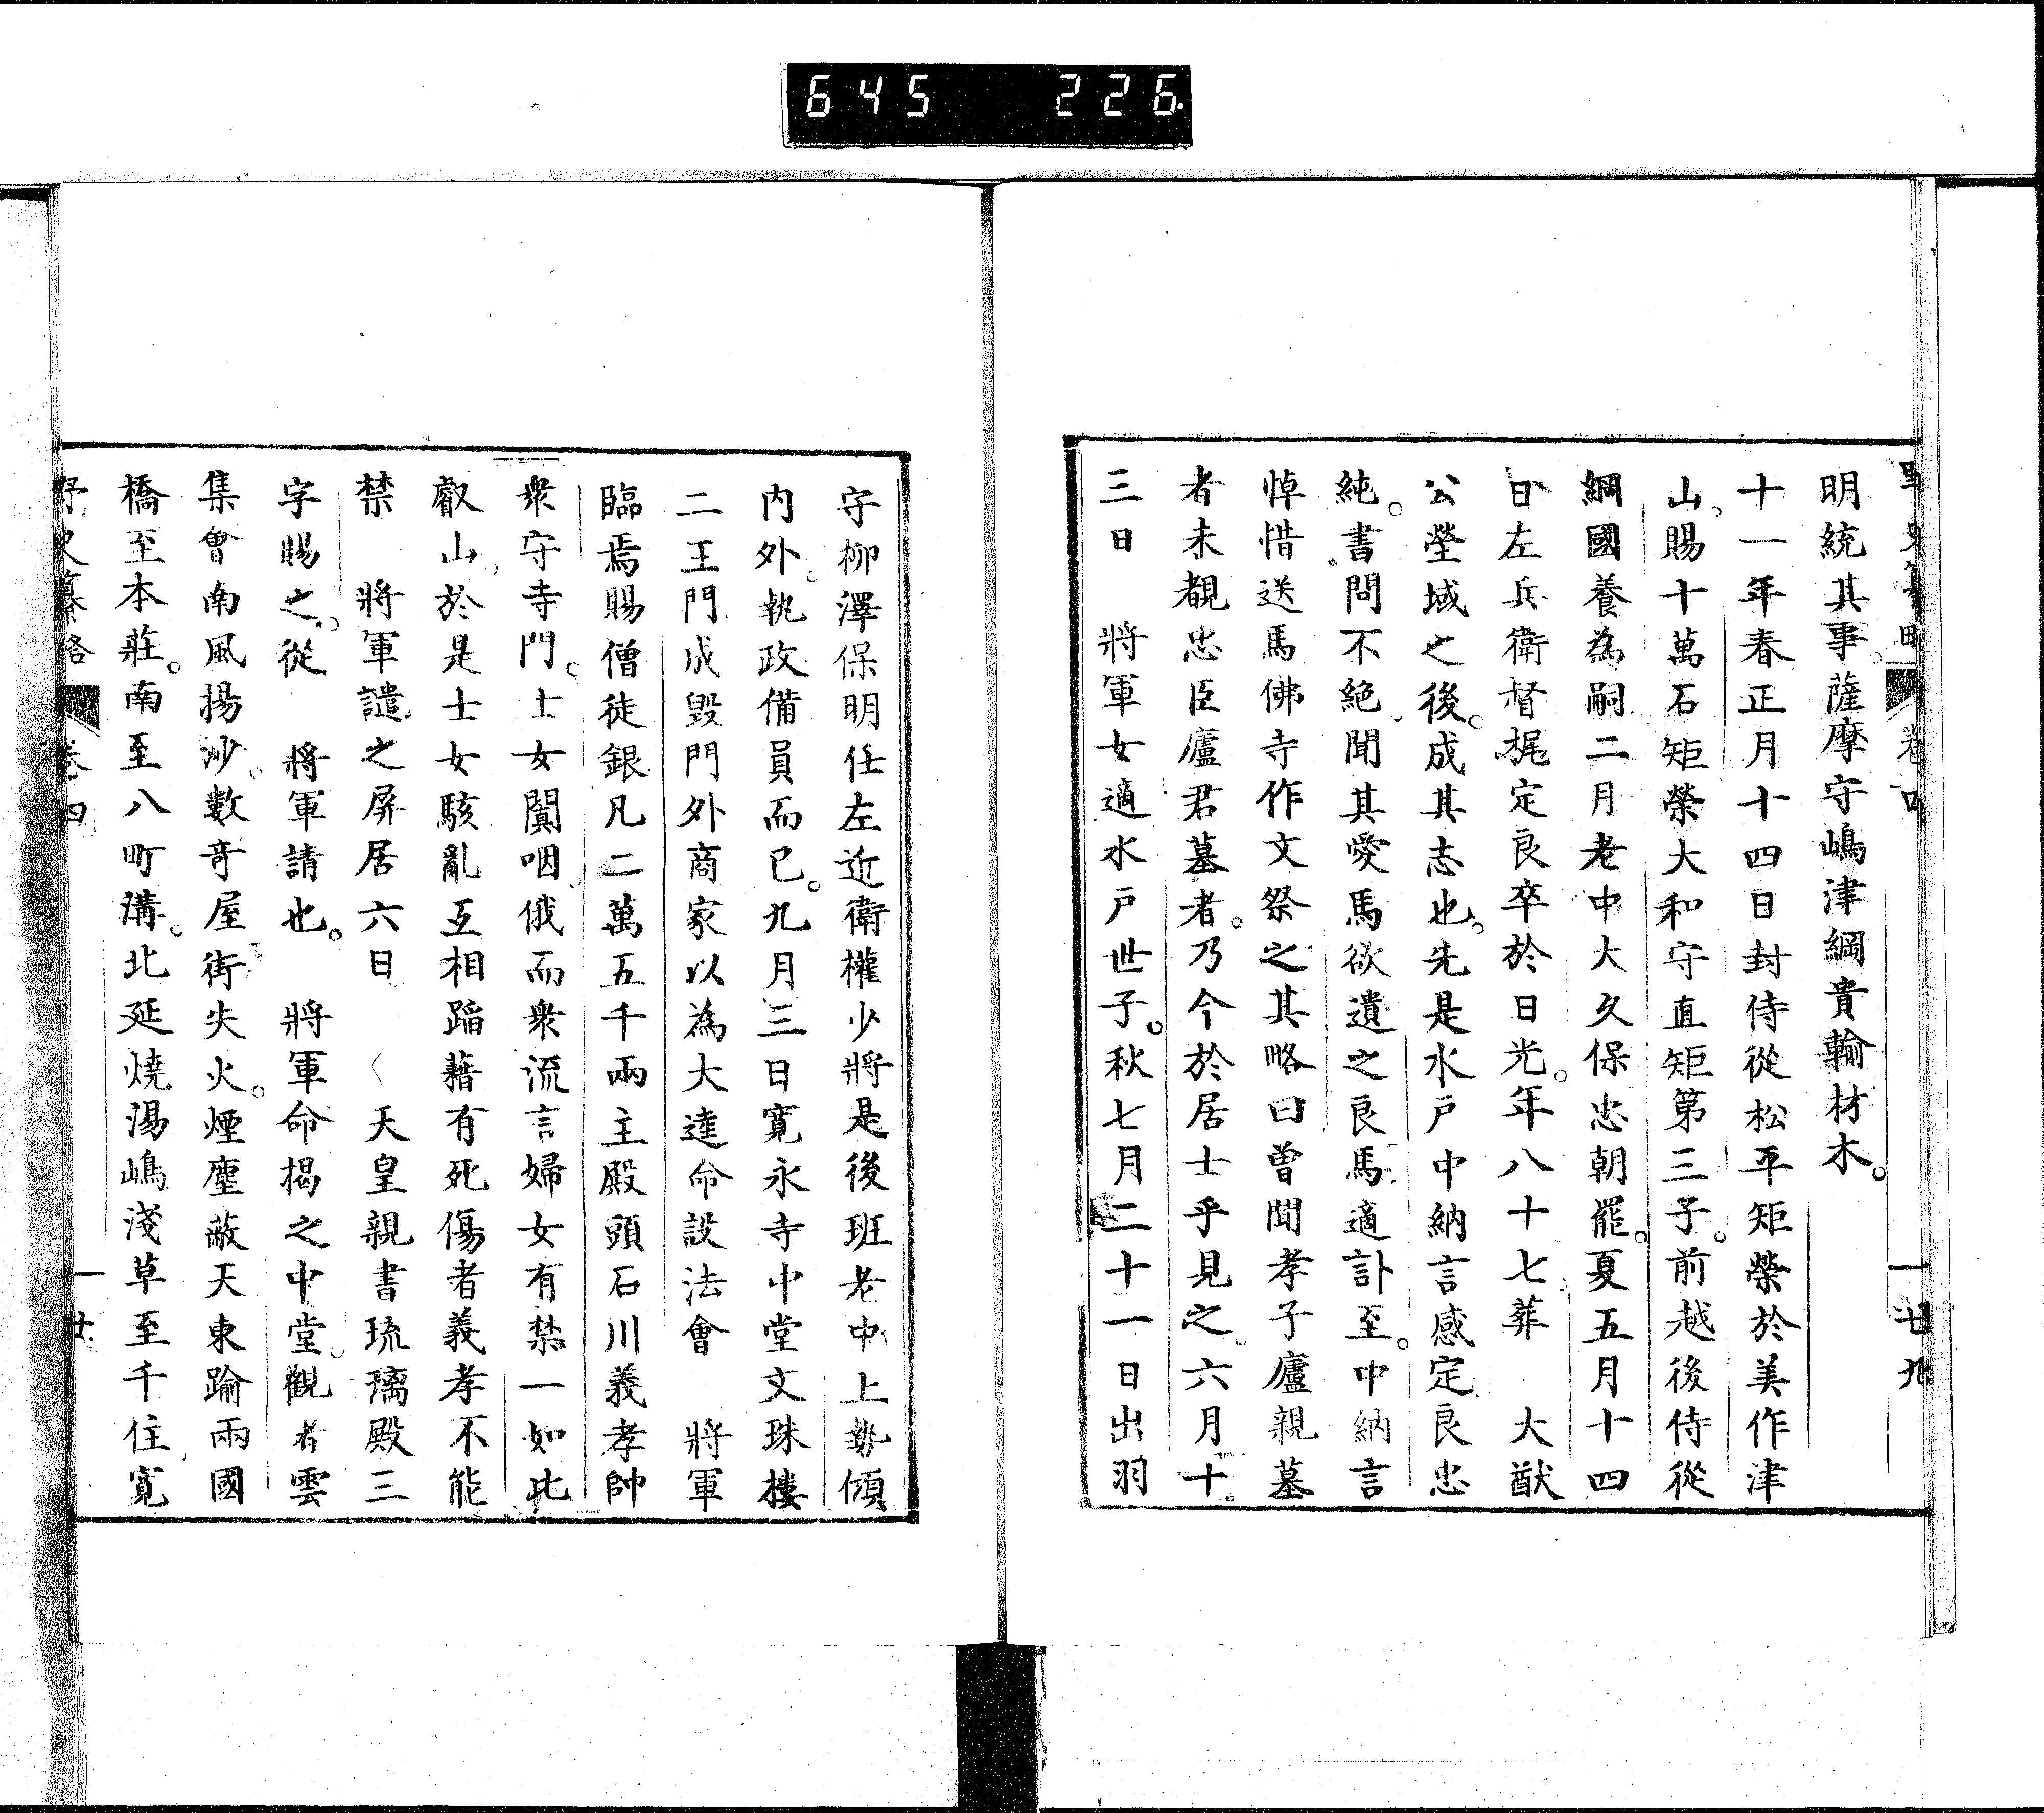 645 226
野史纂略 卷四 一 廿九
明統其事。薩摩守嶋津綱貴輸材木。
十一年春正月十四日封侍從松平矩榮於美作津
山。賜十萬石矩榮大和守直矩第三子。前越後侍從
綱國養為嗣二月老中大久保忠朝罷。夏五月十四
日左兵衛督梶定良卒於日光。年八十七葬 大猷
公塋域之後。成其志也。先是水戶中納言感定良忠
純。書問不絕。聞其愛馬欲遺之良馬適訃至。中納言
悼惜送馬佛寺作文祭之其略曰曾聞孝子廬親墓
者未覩忠臣廬君墓者。乃今於居士乎見之。六月十
三日 將軍女適水戶世子。秋七月二十一日出羽
守柳澤保明任左近衛權少將是後班老中上勢傾
内外。執政備員而已。九月三日寛永寺中堂文珠樓
二王門成毀門外商家以為大逵命設法會 將軍
臨焉賜僧徒銀凡二萬五千兩主殿頭石川義孝帥
衆守寺門。士女闐咽俄而衆流言婦女有禁一如比
叡山。於是士女駭亂互相蹈藉有死傷者義孝不能
禁 將軍譴之屏居六日 天皇親書琉璃殿三
字賜之。從 將軍請也。 將軍命揭之中堂。觀者雲
集會南風揚沙。數竒屋街失火。煙塵蔽天東踰兩國
橋至本莊。南至八町溝。北延燒湯嶋淺草至千住寛
野史纂略 卷四 一 卅